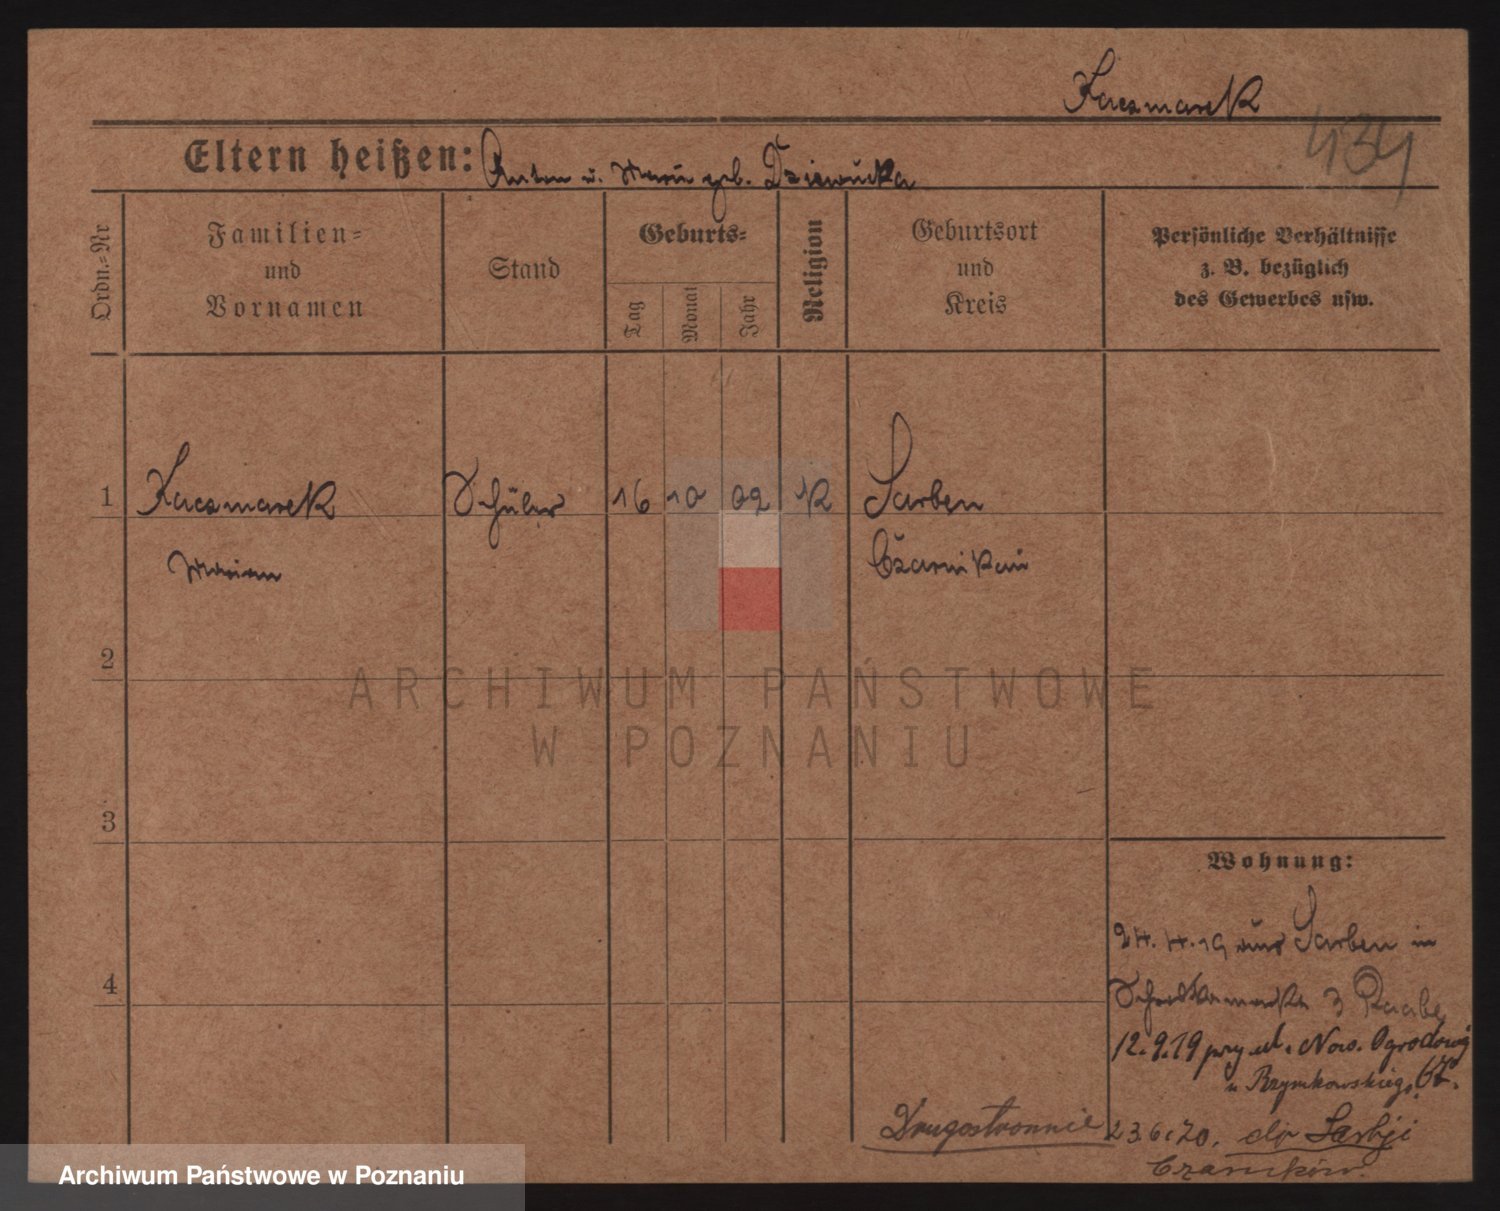 Kaczmarek
434
Eltern heißen: Anton u. Maria geb.
Ordn.-Nr
Familien-
und
Vornamen
Stand
Geburts-
Tag
Monat
Jahr
Religion
Geburtsort
und
Kreis
Persönliche Verhältnisse
z. B. bezüglich
des Gewerbes usw.
1 Kaczmarek Schüler 16 10 02 K Sarben
Marian Czarnikau
2
ARCHIWUM PAŃSTWOWE
W POZNANIU
3
Wohnung:
4
24.4.19 aus Sarben in
3 Raabe
12.9.19 przy ul. Now. Ogrodowej
u Rzymkowskiego 67.
Drugostronnie 23.6.20. do Sarbji
Czarnków.
Archiwum Państwowe w Poznaniu